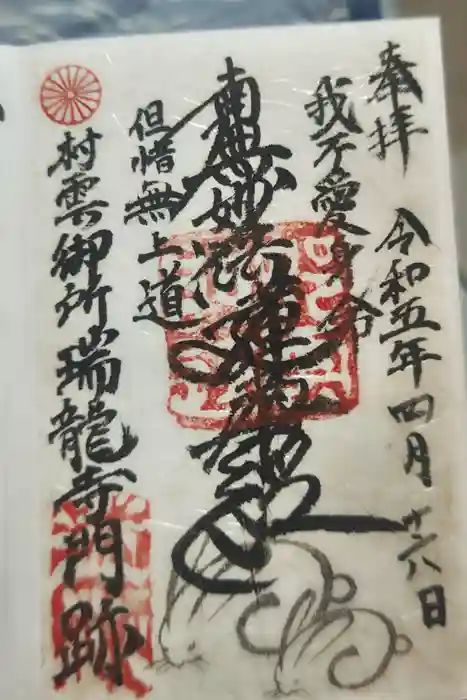 奉拝
令和五年四月廿八日
我不愛身命
南無妙法蓮華経
但惜無上道
村雲御所瑞龍寺門跡